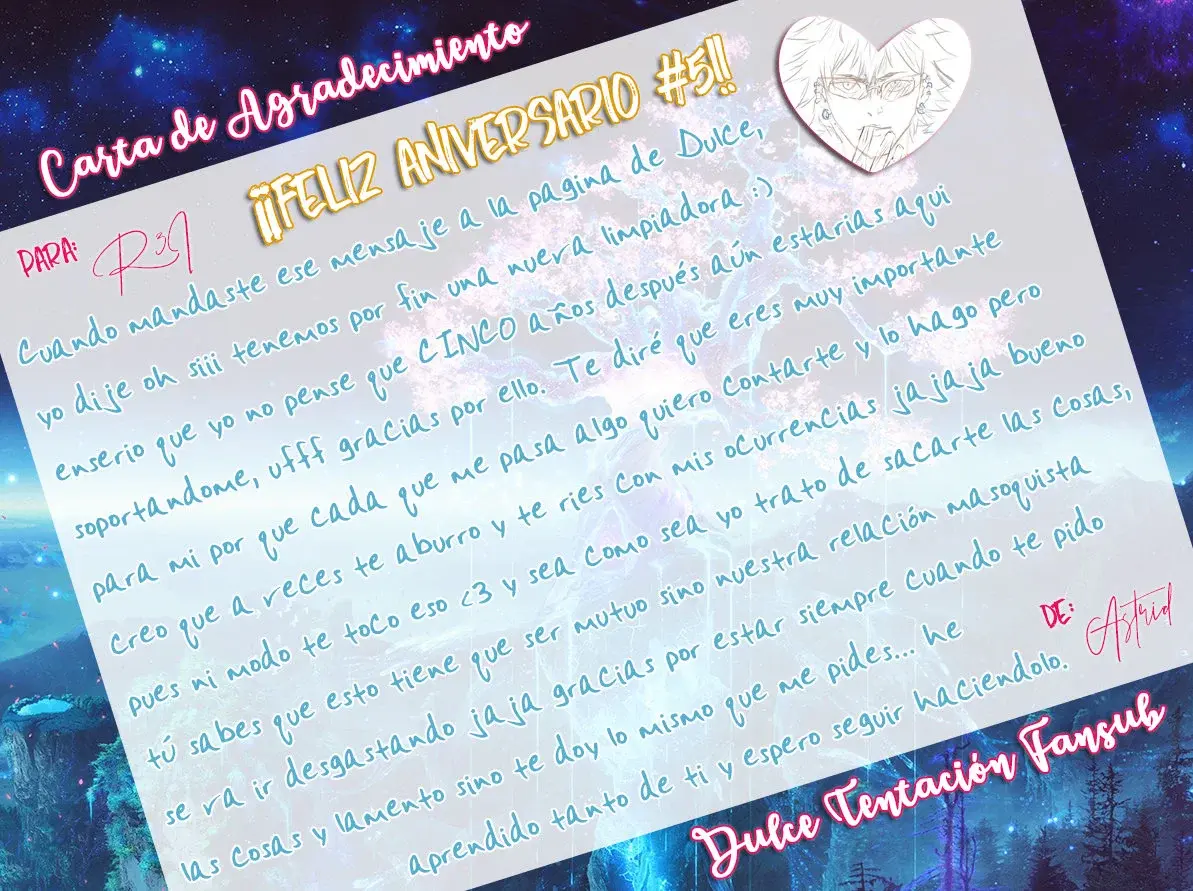 Carta de Agradecimiento
¡¡FELIZ ANIVERSARIO #5!!
PARA: R3I
Cuando mandaste ese mensaje a la pagina de Dulce,
yo dije oh siii tenemos por fin una nueva limpiadora :)
enserio que yo no pense que CINCO años después aún estarias aqui
soportandome, ufff gracias por ello. Te diré que eres muy importante
para mi por que cada que me pasa algo quiero contarte y lo hago pero
creo que a veces te aburro y te ries con mis ocurrencias jajaja bueno
pues ni modo te toco eso <3 y sea como sea yo trato de sacarte las cosas,
tú sabes que esto tiene que ser mutuo sino nuestra relación masoquista
se va ir desgastando jaja gracias por estar siempre cuando te pido
las cosas y lamento sino te doy lo mismo que me pides... he
aprendido tanto de ti y espero seguir haciéndolo.
DE: Astrid
Dulce Tentación Fansub